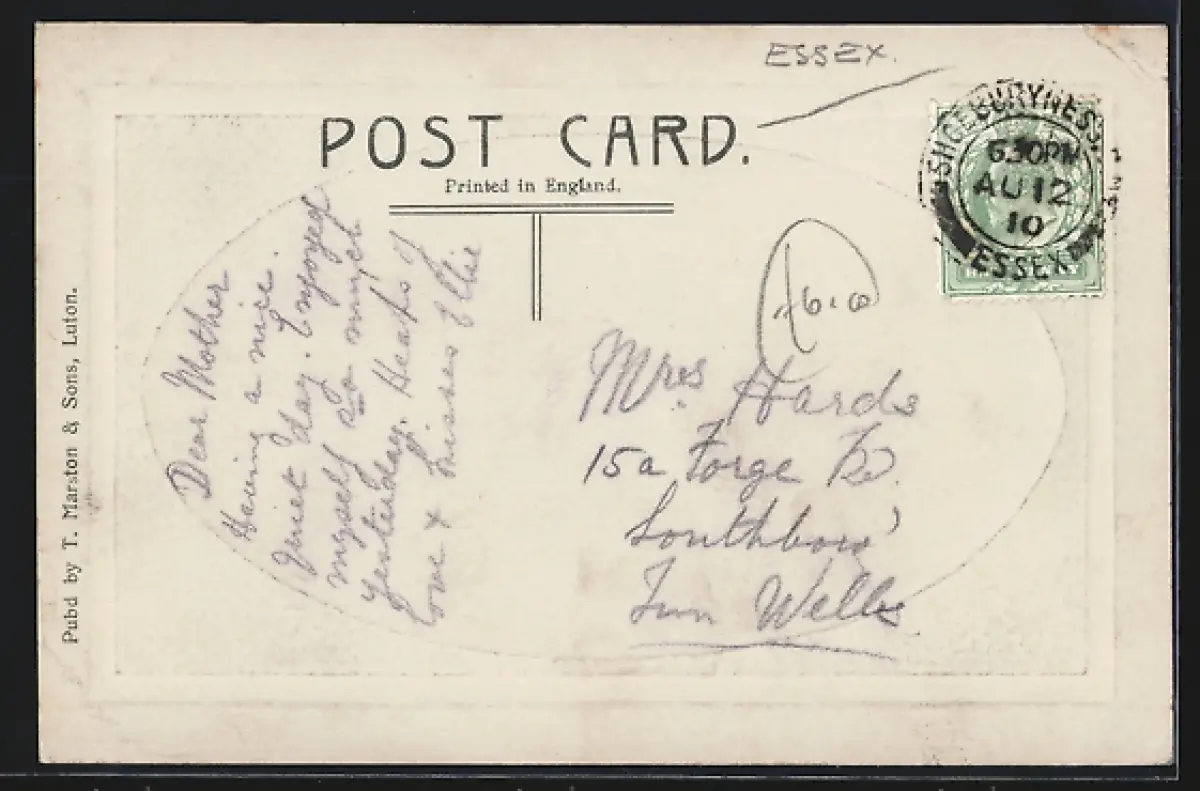 ESSEX.
POST CARD.
Printed in England.
SHOEBURYNESS
6.30PM
AU 12
10
ESSEX
Pubd by T. Marston & Sons, Luton.
Dear Mother
Having a nice
quiet day. Enjoyed
myself so much
yesterday. Heaps of
love & kisses Elsie
Mrs Hards
15a Forge Rd.
Southboro'
Tun Wells